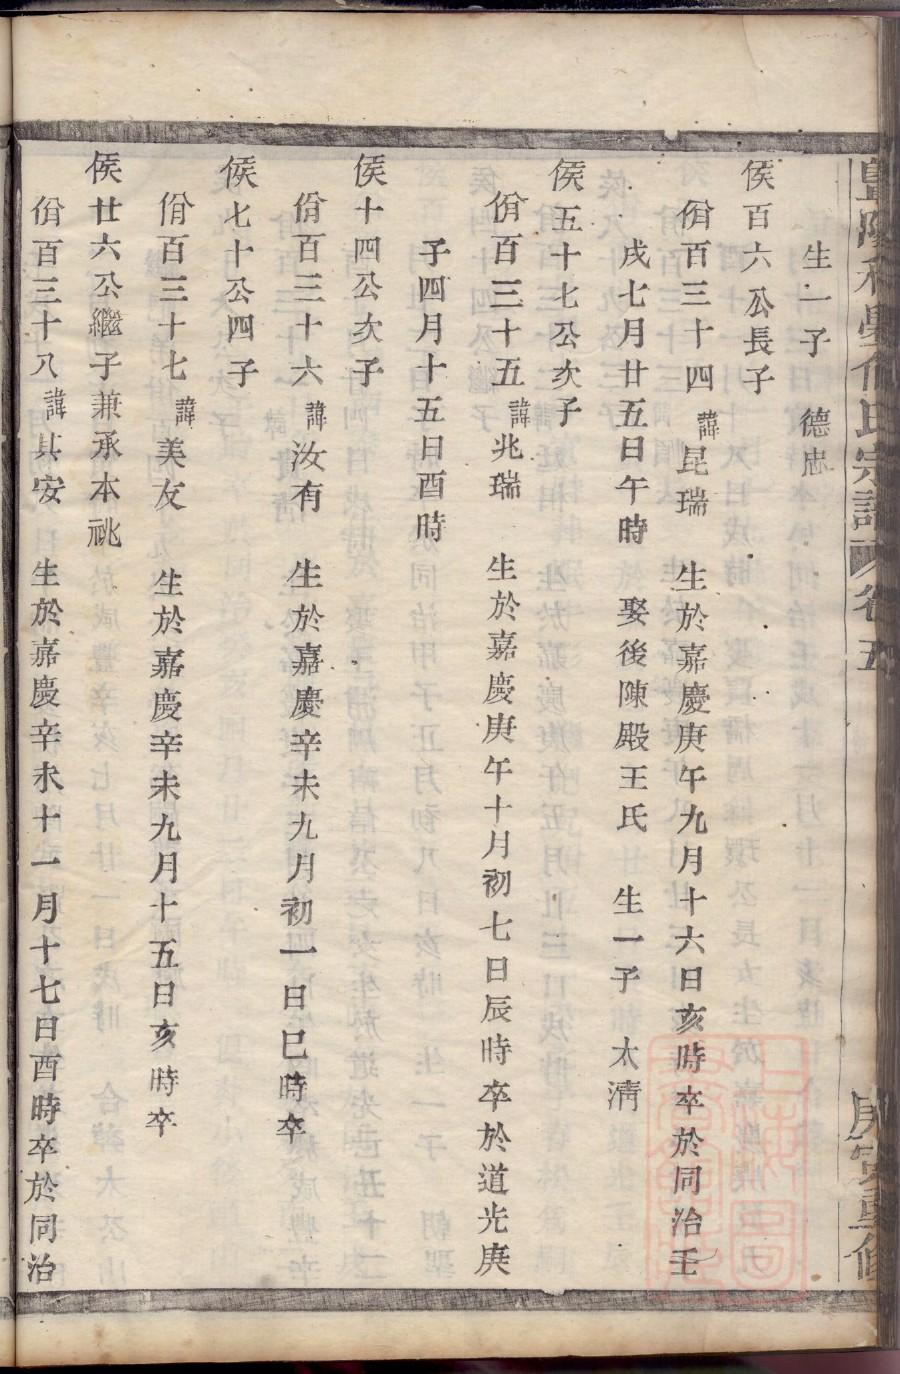 生一子 德忠
侯百六公長子
佾百三十四諱昆瑞 生於嘉慶庚午九月十六日亥時卒於同治壬
戌七月廿五日午時 娶後陳殿王氏 生一子 太淸
侯五十七公次子
佾百三十五諱兆瑞 生於嘉慶庚午十月初七日辰時卒於道光庚
子四月十五日酉時
侯十四公次子
佾百三十六諱汝有 生於嘉慶辛未九月初一日巳時卒
侯七十公四子
佾百三十七諱美友 生於嘉慶辛未九月十五日亥時卒
侯廿六公繼子兼承本祧
佾百三十八諱其安 生於嘉慶辛未十一月十七日酉時卒於同治